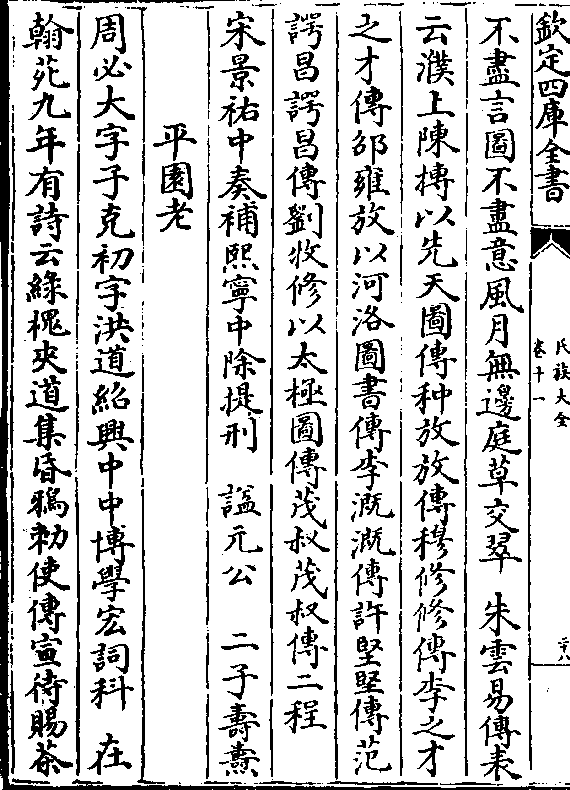 欽定四庫全書
氏族大全
卷十一
二十八
不盡言圖不盡意風月無邊庭草交翠　朱雲易傳表
云濮上陳摶以先天圖傳种放放傳穆修修傳李之才
之才傳邵雍放以河洛圖書傳李溉溉傳許堅堅傳范
諤昌諤昌傳劉牧修以太極圖傳茂叔茂叔傳二程
宋景祐中奏補熙寧中除提刑　諡元公　二子壽燾
平園老
周必大字子充初字洪道紹興中中博學宏詞科　在
翰苑九年有詩云綠槐夾道集昏鴉勅使傳宣待賜茶